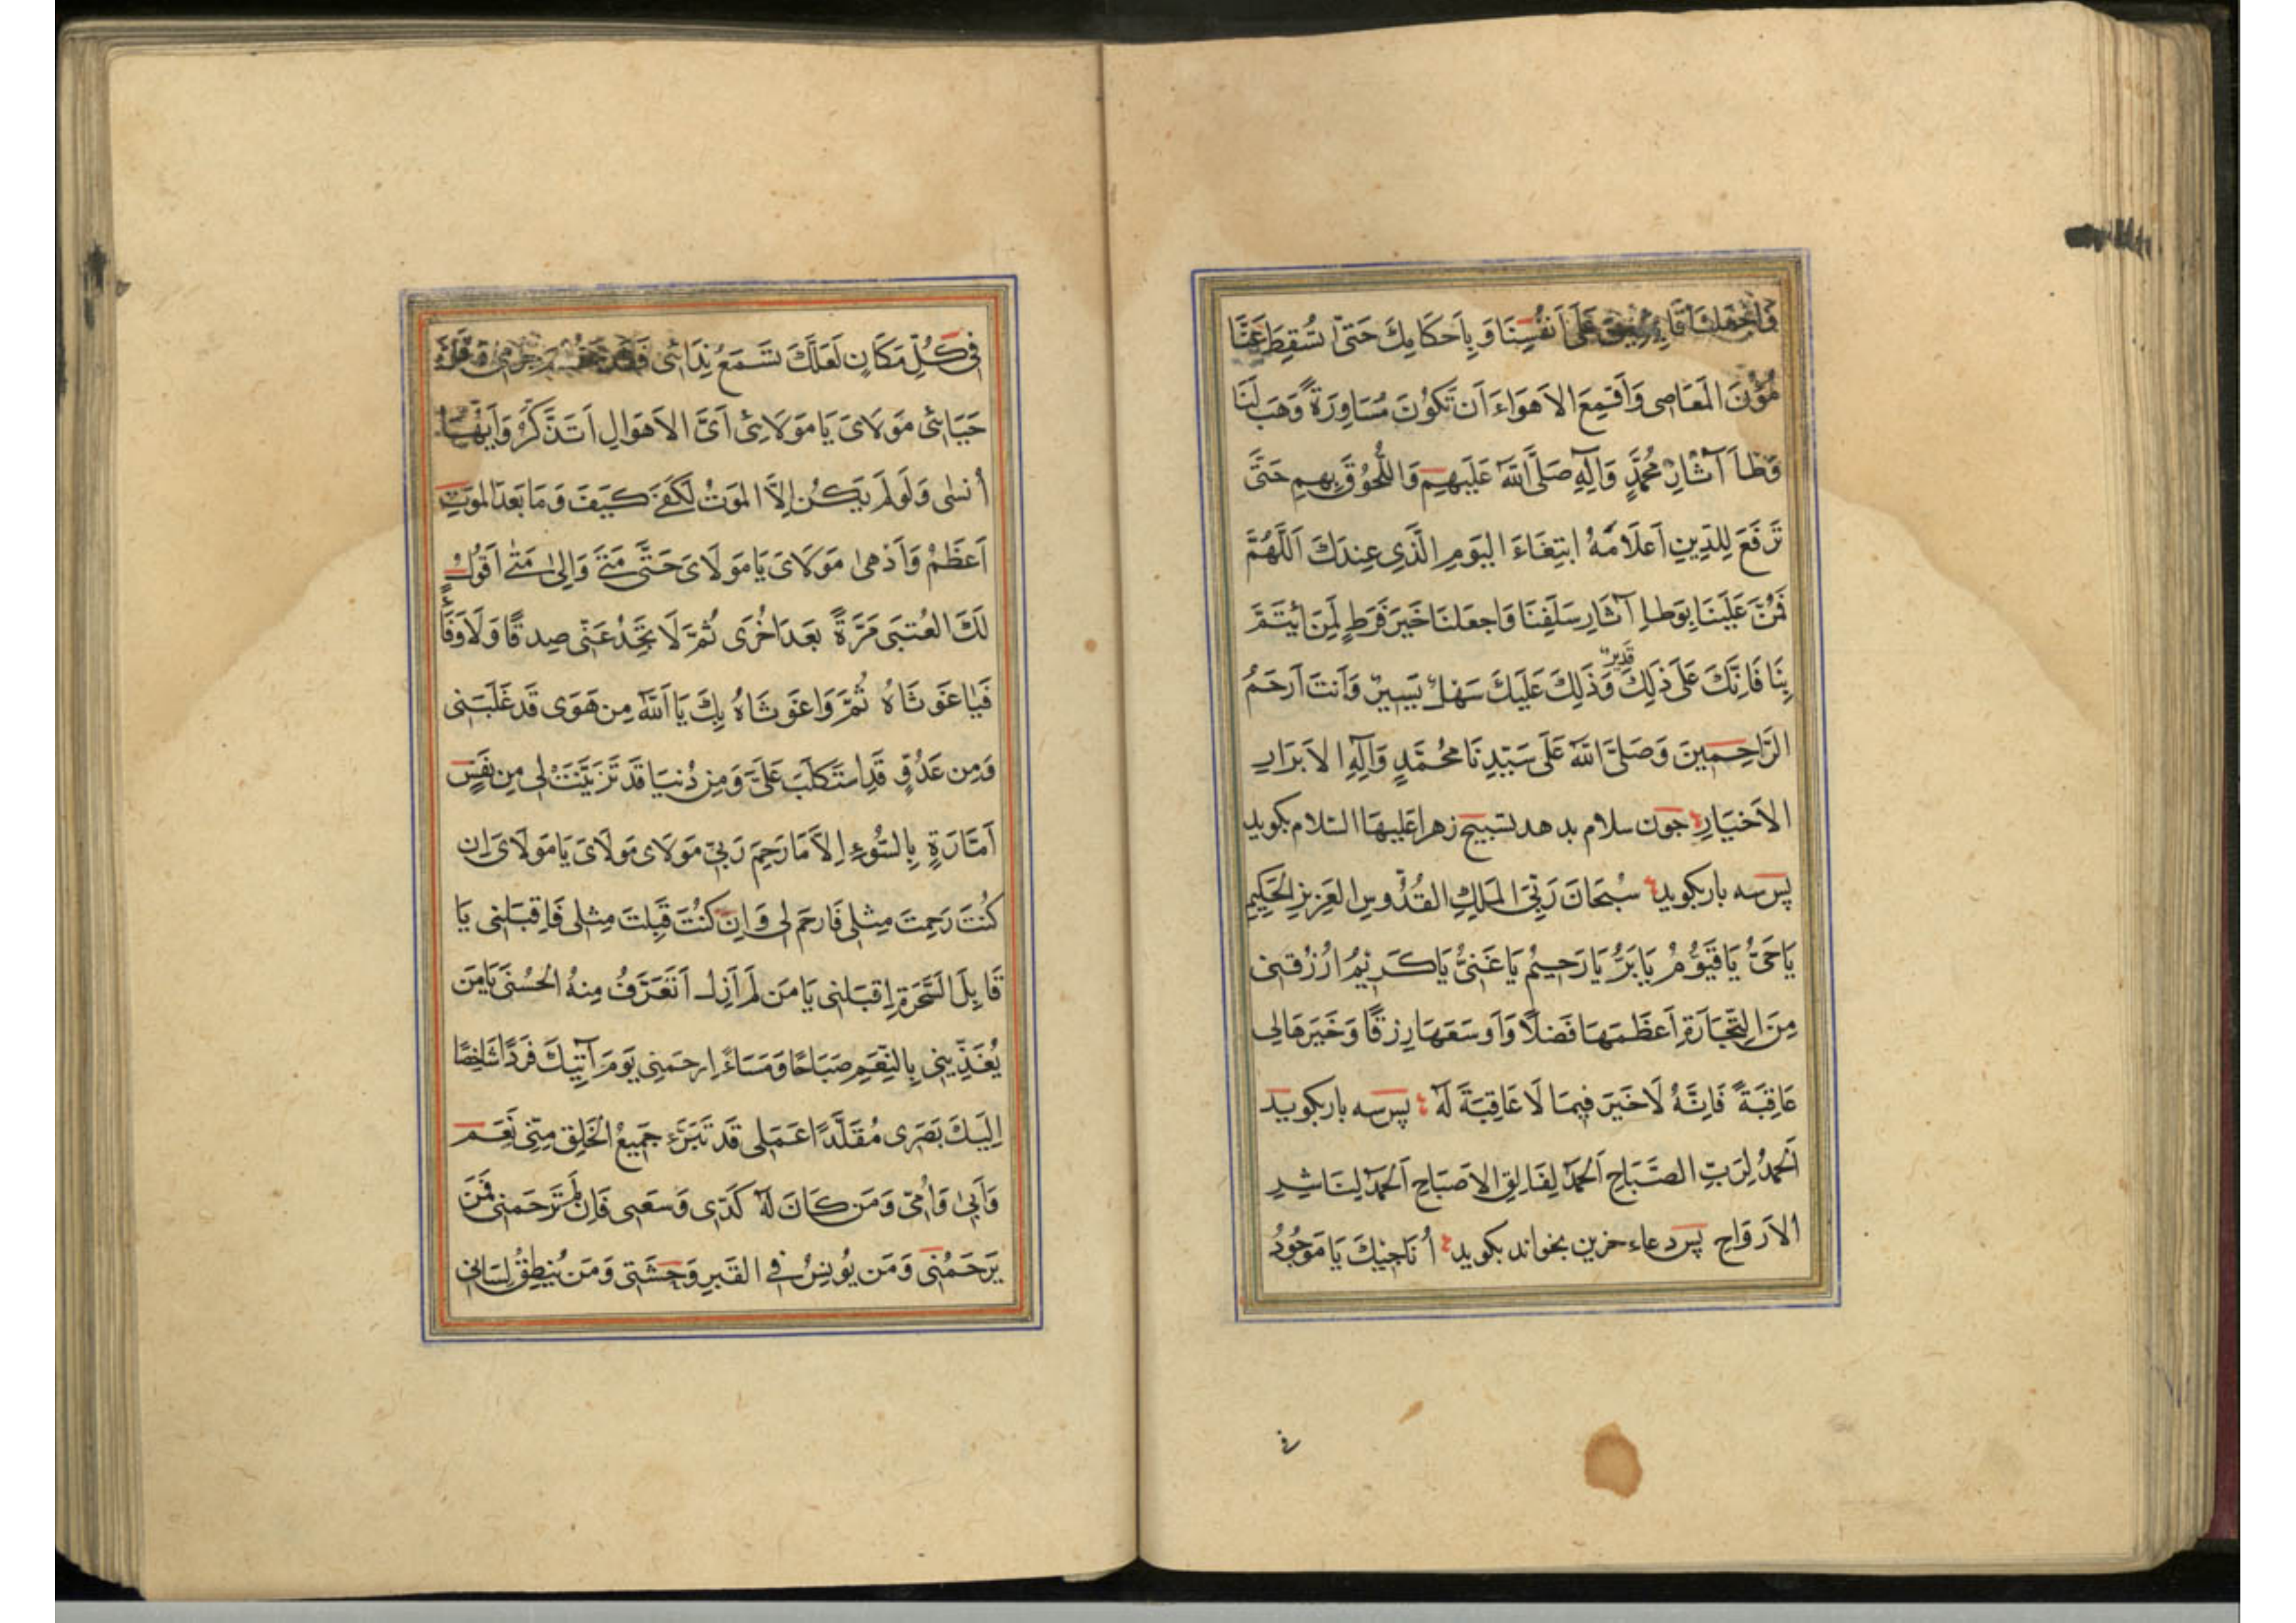 عَلَى أَنفُسِنَا وَ بِاَحكَامِكَ حَتّىٰ تُسقِطَ عَنَّا
مُؤَنَ المَعَاصِى وَأَقمِعِ الاَهوَاءَ اَن تَكُونَ مُسَاوِرَةً وَهَب لَنَا
وَطأَ آثَارِ مُحَمَّدٍ وَآلِهِ صَلَّى اللّٰهُ عَلَيهِم وَاللُّحُوقَ بِهِم حَتَّى
تَرفَعَ لِلدّينِ اَعلَامَهُ ابتِغَاءَ اليَومِ الَّذِى عِندَكَ اَللّهُمَّ
فَمُنَّ عَلَينَا بِوَطإِ آثَارِ سَلَفِنَا وَاجعَلنَا خَيرَ فَرَطٍ لِمَن ائتَمَّ
بِنَا فَاِنَّكَ عَلَى ذٰلِكَ قَدِيرٌ وَذٰلِكَ عَلَيكَ سَهلٌ يَسِيرٌ وَأَنتَ اَرحَمُ
الرَّاحِمِينَ وَصَلَّى اللّٰهُ عَلَى سَيِّدِنَا مُحَمَّدٍ وَآلِهِ الاَبرَارِ
الاَخيَارِ جون سلام بدهد تسبيح زهرا عَليهَا السّلام بكويد
پس سه بار بكويد سُبحَانَ رَبِّىَ المَلِكِ القُدُّوسِ العَزِيزِ الحَكِيمِ
يَا حَىُّ يَا قَيُّومُ يَا بَرُّ يَا رَحِيمُ يَا غَنِىُّ يَا كَرِيمُ ارزُقنِى
مِنَ التِّجَارَةِ اَعظَمَهَا فَضلًا وَاَوسَعَهَا رِزقًا وَخَيرَهَا لِى
عَاقِبَةً فَاِنَّهُ لَا خَيرَ فِيمَا لَا عَاقِبَةَ لَهُ پس سه بار بكويد
اَلحَمدُ لِرَبِّ الصَّبَاحِ اَلحَمدُ لِفَالِقِ الاِصبَاحِ اَلحَمدُ لِنَاشِرِ
الاَروَاحِ پس دعاء حزين بخواند بكويد أُنَاجِيكَ يَا مَوجُودُ
فى
فِى كُلِّ مَكَانٍ لَعَلَّكَ تَسمَعُ نِدَائِى فَقَد جُرمِى وَقَلَّ
حَيَائِى مَولَاىَ يَا مَولَائِى اَىَّ الاَهوَالِ اَتَذَكَّرُ وَاَيَّهَا
أَنسٰى وَلَو لَم يَكُن اِلَّا المَوتُ لَكَفَى كَيفَ وَمَا بَعدَ المَوتِ
اَعظَمُ وَاَدهىٰ مَولَاىَ يَا مَولَاىَ حَتَّى مَتَى وَاِلىٰ مَتٰى اَقُولُ
لَكَ العُتبَى مَرَّةً بَعدَ اُخرَى ثُمَّ لَا تَجِدُ عِندِى صِدقًا وَلَا وَفَاءً
فَيَا غَوثَاهُ ثُمَّ وَاغَوثَاهُ بِكَ يَا اَللّٰهُ مِن هَوًى قَد غَلَبَنِى
وَمِن عَدُوٍّ قَدِ استَكلَبَ عَلَىَّ وَمِن دُنيَا قَد تَزَيَّنَت لِى مِن نَفسٍ
اَمَّارَةٍ بِالسُّوءِ اِلَّا مَا رَحِمَ رَبِّى مَولَاىَ مَولَاىَ يَا مَولَاىَ اِن
كُنتَ رَحِمتَ مِثلِى فَارحَم لِى وَاِن كُنتَ قَبِلتَ مِثلِى فَاقبَلنِى يَا
قَابِلَ السَّحَرَةِ اِقبَلنِى يَا مَن لَم اَزَل اَتَعَرَّفُ مِنهُ الحُسنَى يَا مَن
يُغَذِّينِى بِالنِّعَمِ صَبَاحًا وَمَسَاءً اِرحَمنِى يَومَ آتِيكَ فَردًا شَاخِصًا
اِلَيكَ بَصَرِى مُقَلَّدًا عَمَلِى قَد تَبَرَّءَ جَمِيعُ الخَلقِ مِنِّى نَعَم
وَاَبِى وَاُمِّى وَمَن كَانَ لَهُ كَدِّى وَسَعيِى فَاِن لَم تَرحَمنِى فَمَن
يَرحَمُنِى وَمَن يُونِسُ فِى القَبرِ وَحشَتِى وَمَن يُنطِقُ لِسَانِى